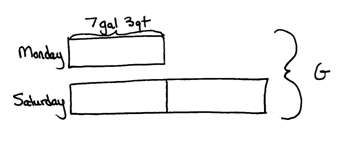 7 gal 3qt
Monday
G
Saturday